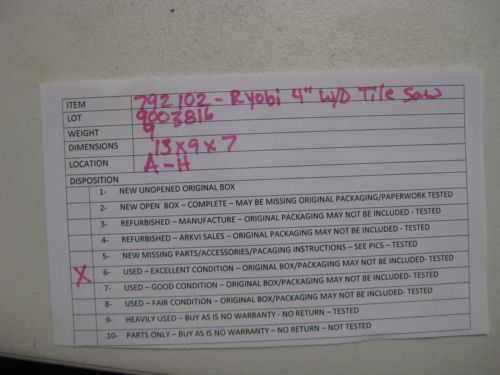 ITEM 792102 - Ryobi 4" W/D Tile Saw
LOT 9003816
WEIGHT 9
DIMENSIONS 13 x 9 x 7
LOCATION A - H
DISPOSITION
1- NEW UNOPENED ORIGINAL BOX
2- NEW OPEN BOX – COMPLETE – MAY BE MISSING ORIGINAL PACKAGING/PAPERWORK TESTED
3- REFURBISHED – MANUFACTURE – ORIGINAL PACKAGING MAY NOT BE INCLUDED - TESTED
4- REFURBISHED – ARKVI SALES – ORIGINAL PACKAGING MAY NOT BE INCLUDED - TESTED
5- NEW MISSING PARTS/ACCESSORIES/PACAGING INSTRUCTIONS – SEE PICS – TESTED
X 6- USED – EXCELLENT CONDITION – ORIGINAL BOX/PACKAGING MAY NOT BE INCLUDED- TESTED
7- USED – GOOD CONDITION – ORIGINAL BOX/PACKAGING MAY NOT BE INCLUDED- TESTED
8- USED – FAIR CONDITION – ORIGINAL BOX/PACKAGING MAY NOT BE INCLUDED- TESTED
9- HEAVILY USED – BUY AS IS NO WARRANTY - NO RETURN – TESTED
10- PARTS ONLY – BUY AS IS NO WARRANTY – NO RETURN – NOT TESTED